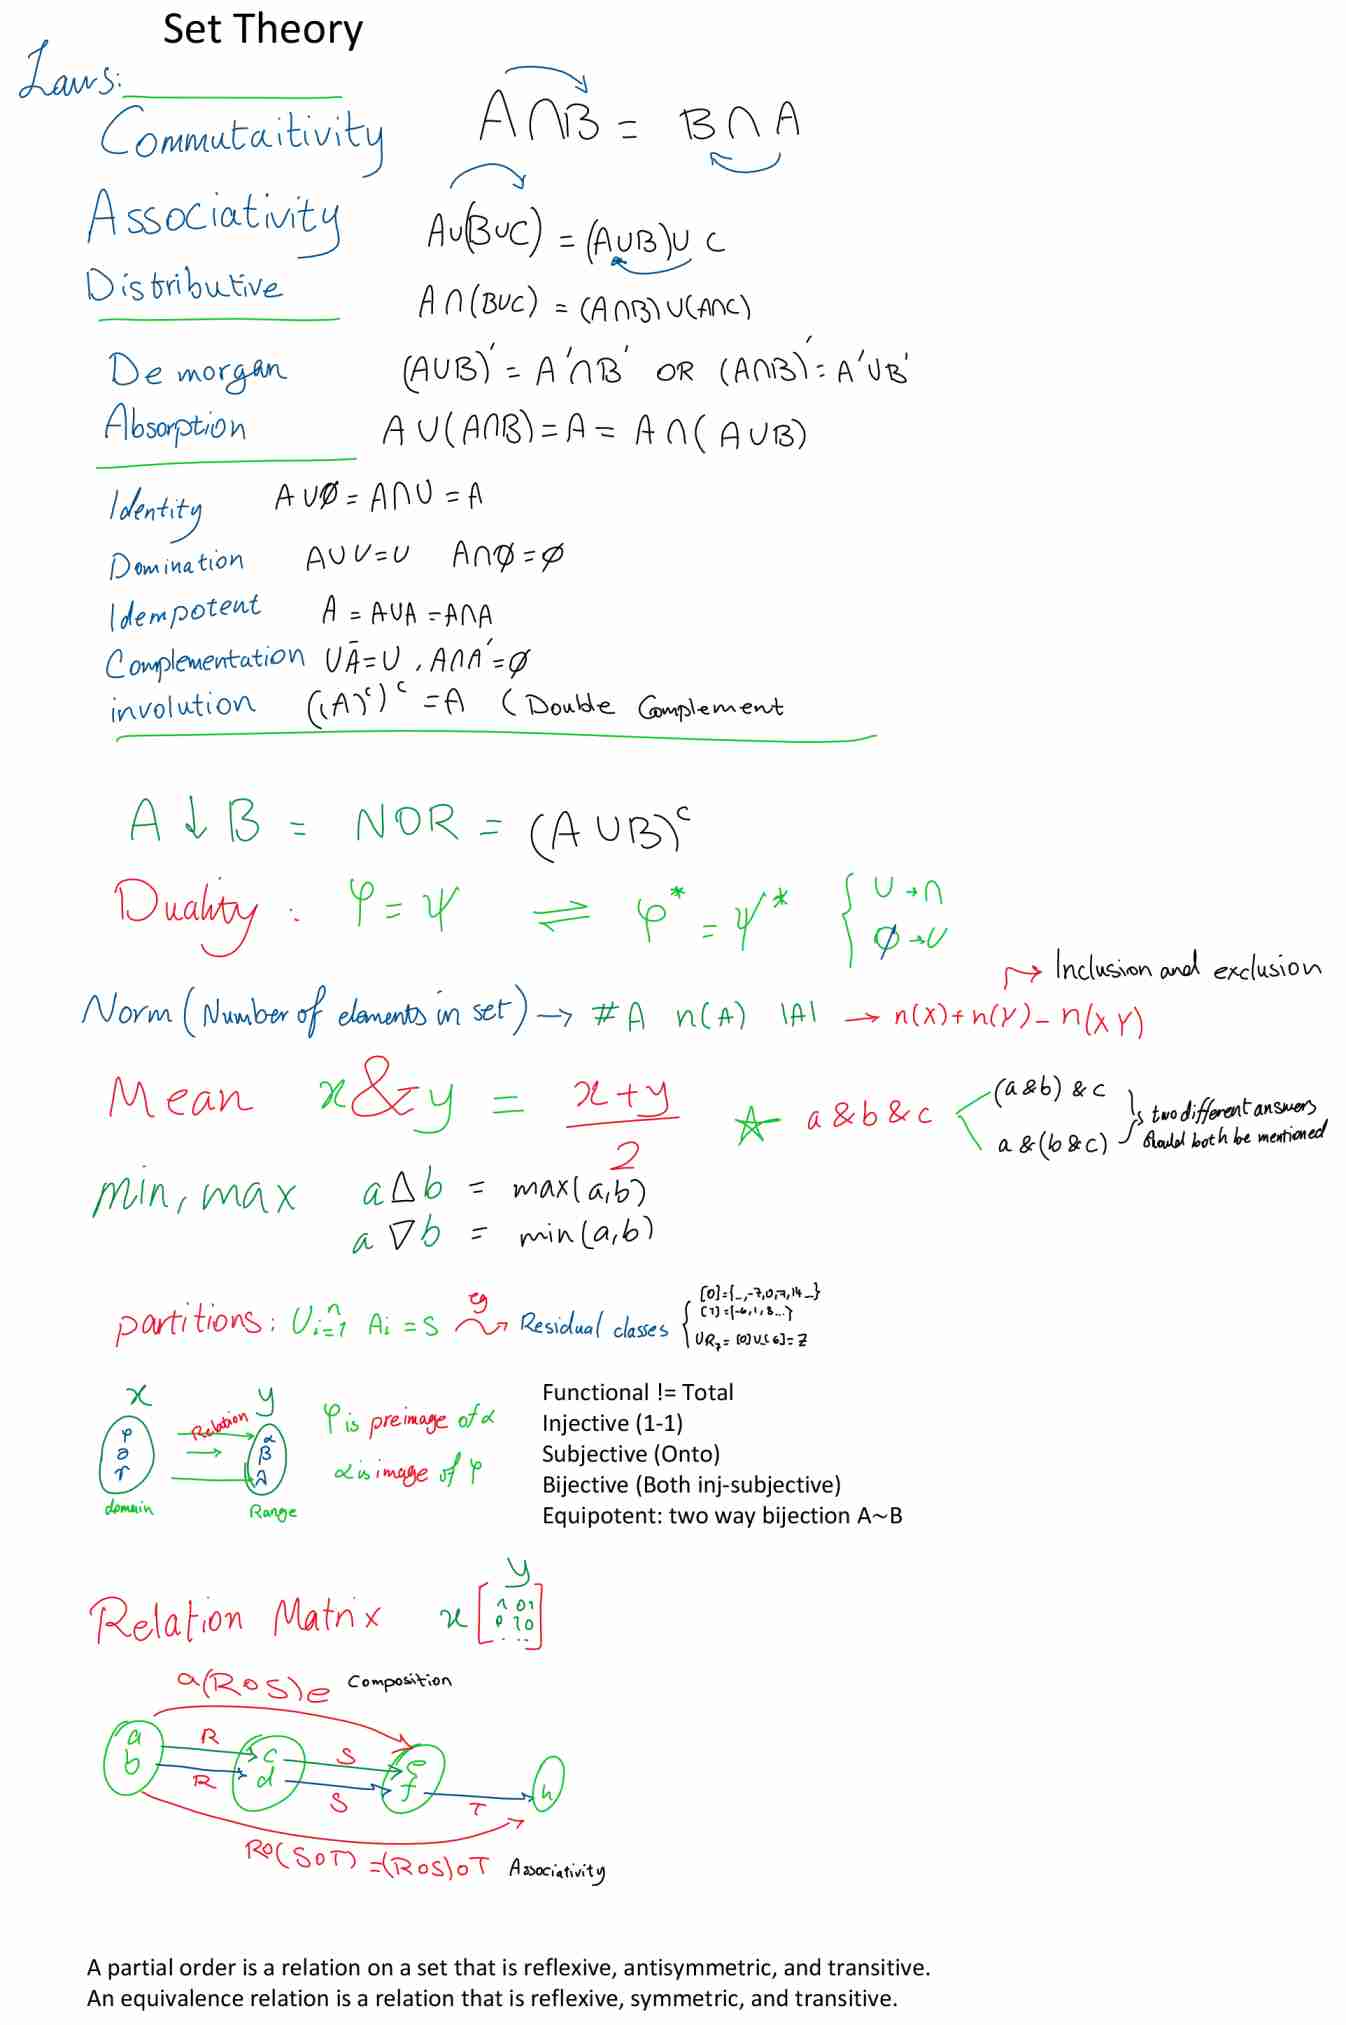 Set Theory
Laws:
Commutaitivity A∩B = B∩A
Associativity A∪(B∪C) = (A∪B)∪ C
Distributive A∩(B∪C) = (A∩B)∪(A∩C)
De morgan (A∪B)' = A'∩B' OR (A∩B)' = A'∪B'
Absorption A∪(A∩B)=A= A∩(A∪B)
Identity A∪∅=A∩U=A
Domination A∪U=U A∩∅=∅
Idempotent A = A∪A =A∩A
Complementation UĀ=U , A∩A'=∅
involution ((A)ᶜ)ᶜ =A (Double Complement
A↓B = NOR = (A∪B)ᶜ
Duality: φ=ψ ⇌ φ*=ψ* { ∪→∩
∅→U
Inclusion and exclusion
Norm (Number of elements in set) → #A n(A) |A| → n(X)+n(Y)-n(XY)
Mean x&y = x+y / 2 ☆ a&b&c
(a&b) & c
a&(b&c)
two different answers
should both be mentioned
min, max a△b = max(a,b)
a▽b = min(a,b)
partitions: ∪ⁿᵢ₌₁ Aᵢ = S eg Residual classes
[0]={..,-7,0,7,14..}
[1]={-6,1,8...}
∪R₇=[0]∪..[6]=Z
x y
Relation
φ α
∂ β
γ λ
domain Range
φ is preimage of α
α is image of φ
Functional != Total
Injective (1-1)
Subjective (Onto)
Bijective (Both inj-subjective)
Equipotent: two way bijection A~B
y
Relation Matrix x [1 0 1
0 1 0
. . .]
a(RoS)e Composition
a R c S e
b R d S f T h
Ro(SoT) =(RoS)oT Associativity
A partial order is a relation on a set that is reflexive, antisymmetric, and transitive.
An equivalence relation is a relation that is reflexive, symmetric, and transitive.